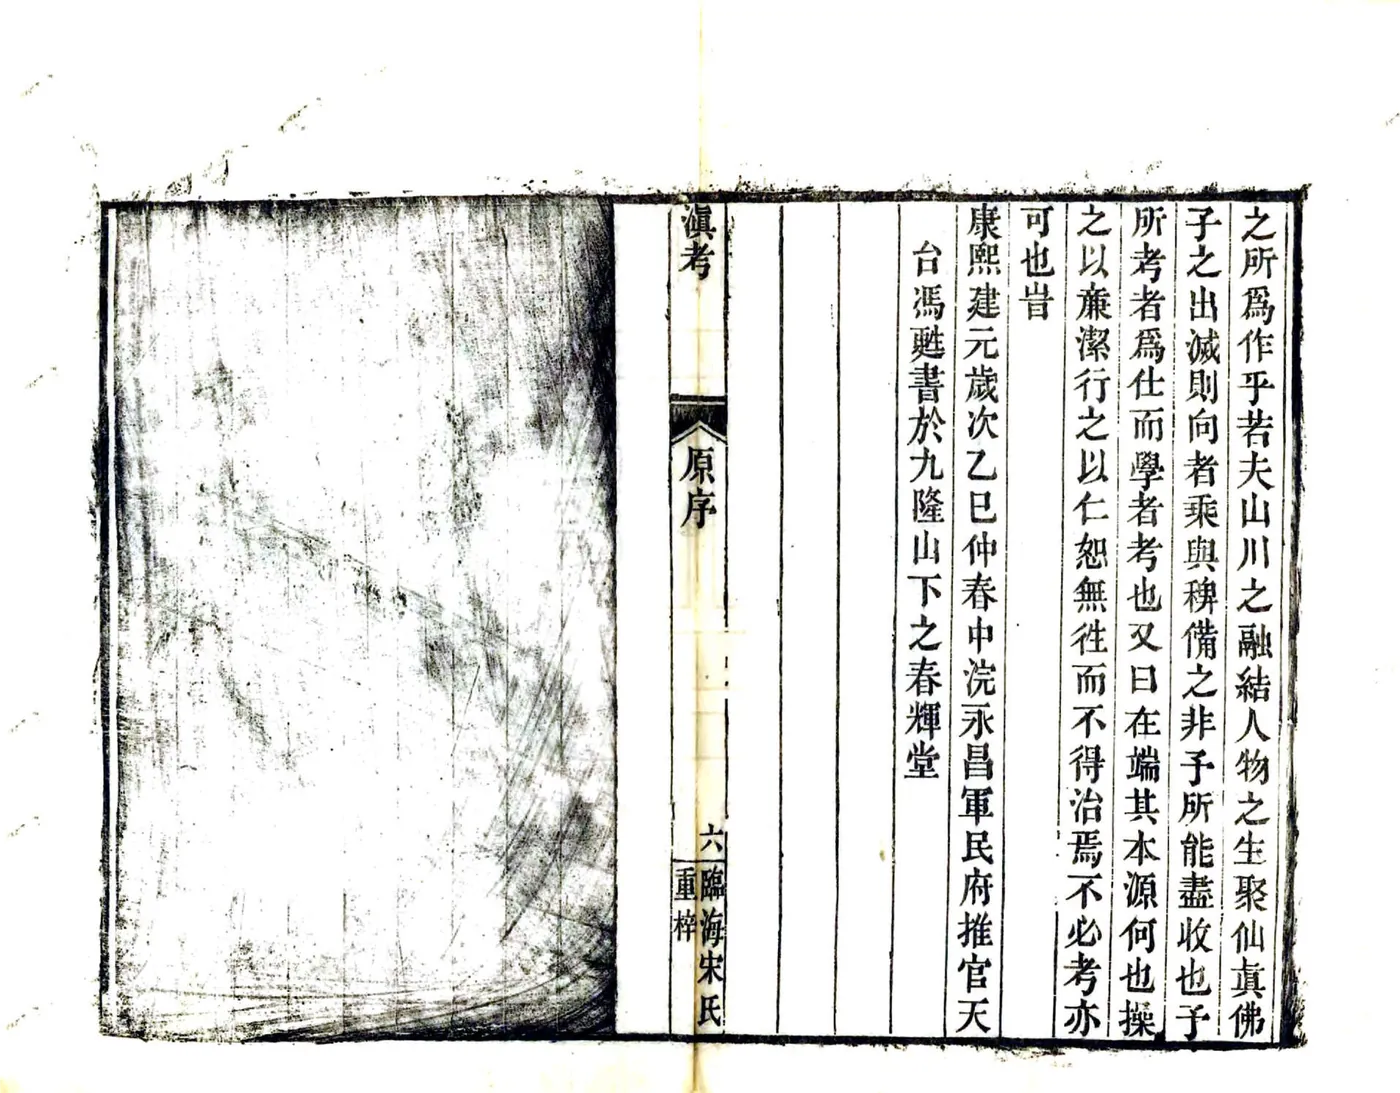 之所爲作乎若夫山川之融結人物之生聚仙眞佛
子之出滅則向者乘與稗備之非予所能盡收也予
所考者爲仕而學者考也又曰在端其本源何也操
之以亷潔行之以仁恕無徃而不得治焉不必考亦
可也旹
康熙建元歲次乙巳仲春中浣永昌軍民府推官天
台馮甦書於九隆山下之春輝堂
滇考
原序
六
臨海宋氏
重梓